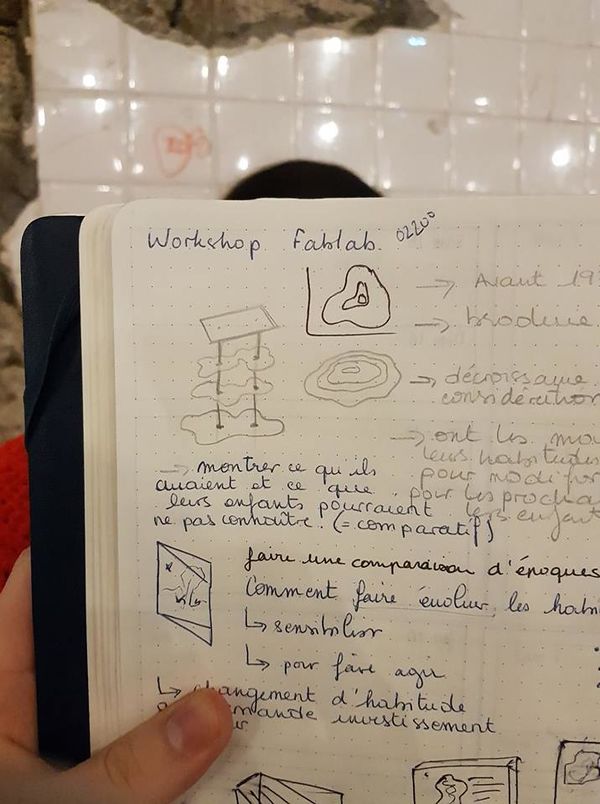 Workshop Fablab.
→ Avant 19
→ broderie
→ décroissance
considération
→ ont les
leurs habitudes
pour
pour les procha
leurs enfant
→ montrer ce qu'ils
avaient et ce que
leurs enfants pourraient
ne pas connaître. (= comparatif)
faire une comparaison d'époques
Comment faire évoluer les hab
↳ sensibiliser
↳ pour faire agir
↳ changement d'habitude
demande investissement